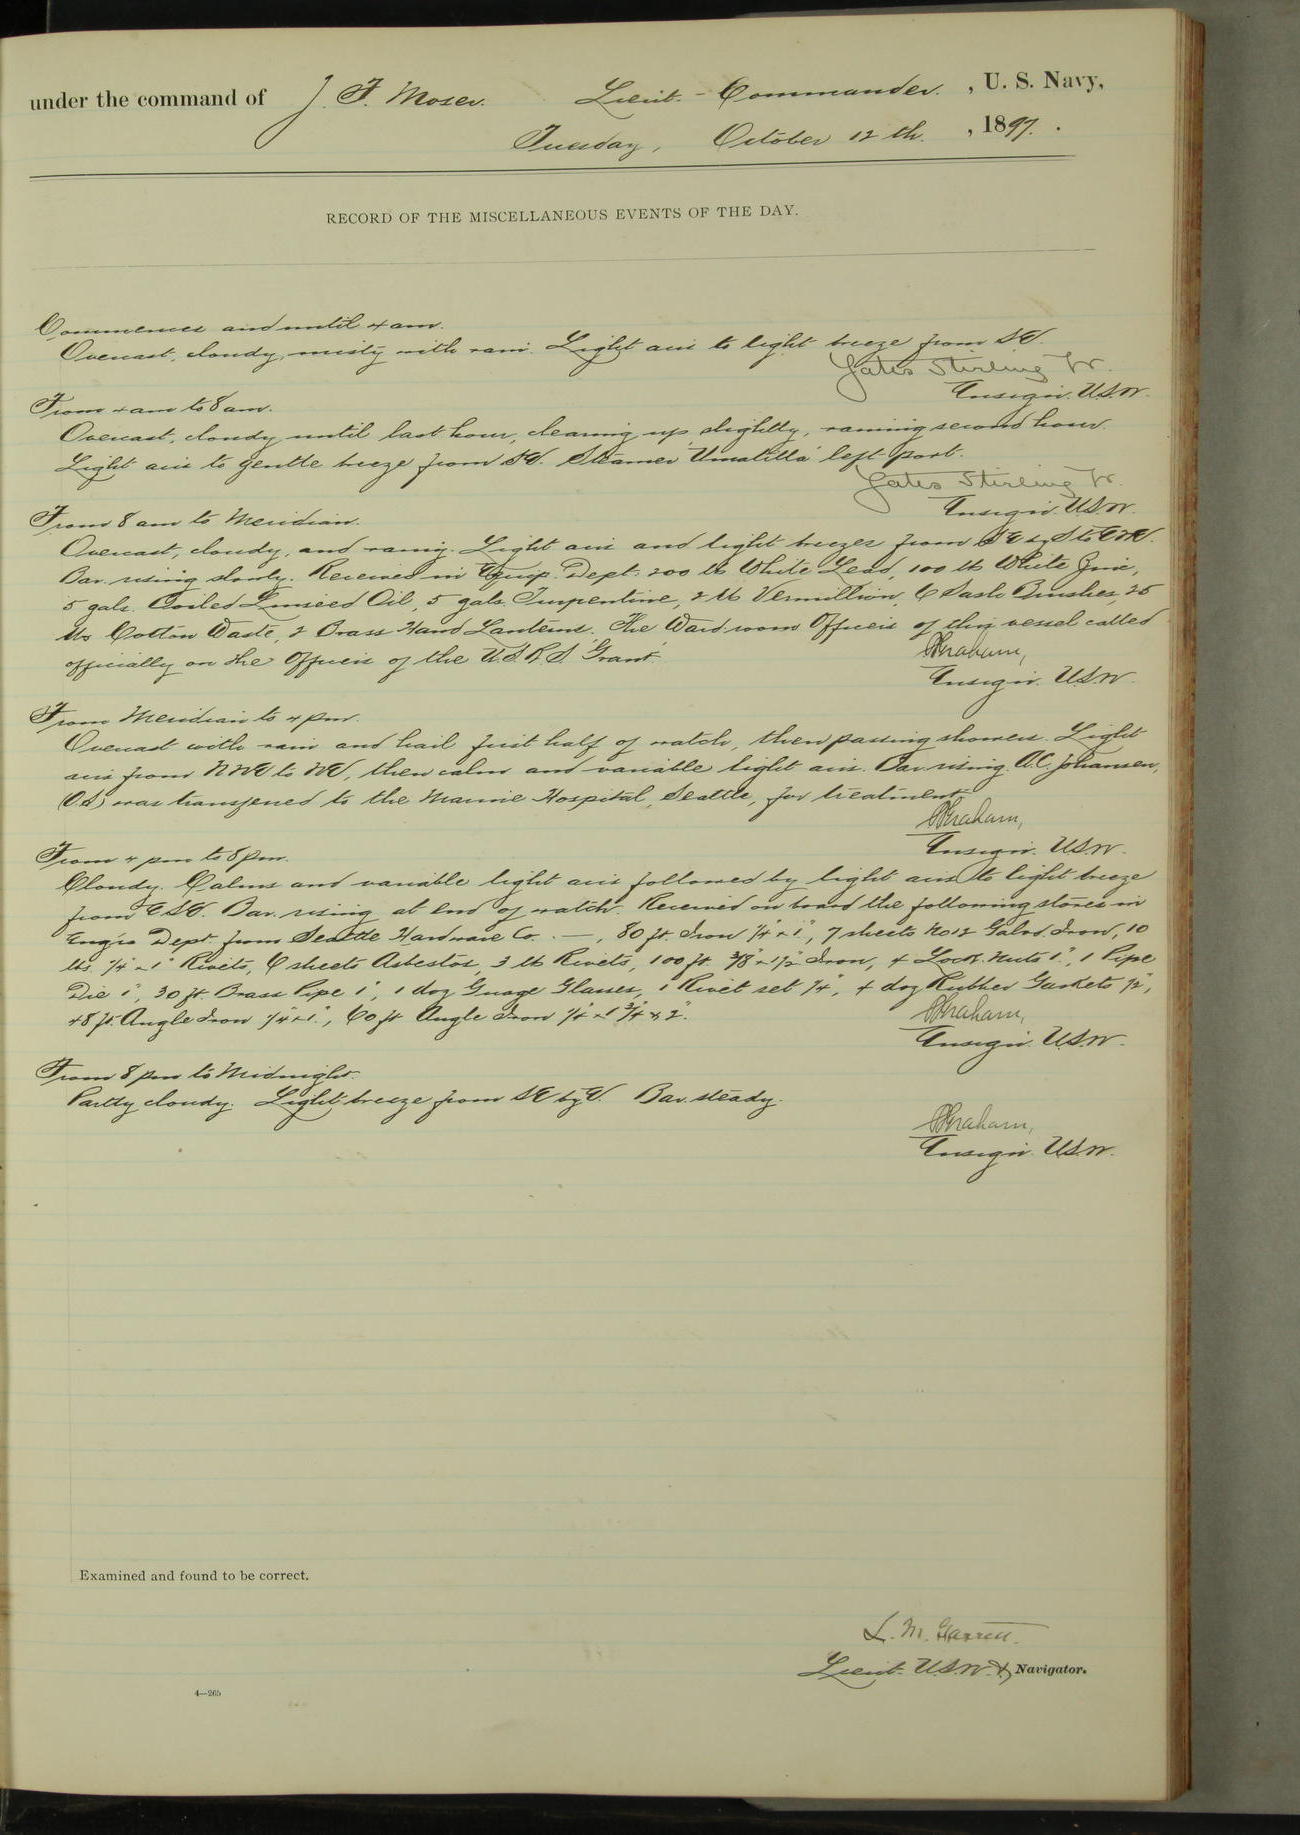 under the command of J. F. Moser. Lieut.-Commander. , U. S. Navy,
Tuesday, October 12 th. , 1897.
RECORD OF THE MISCELLANEOUS EVENTS OF THE DAY.
Commences and until 4 am.
Overcast, cloudy, misty with rain. Light airs to light breeze from SE.
Yates Stirling Jr.
Ensign. U.S.N.
From 4 am to 8 am.
Overcast, cloudy until last hour, clearing up slightly, raining second hour.
Light airs to gentle breeze from SE. Steamer "Umatilla" left port.
Yates Stirling Jr.
Ensign. U.S.N.
From 8 am to Meridian.
Overcast, cloudy, and rainy. Light airs and light breezes from SE by S to ENE.
Bar. rising slowly. Received in Equip. Dept. 200 lb White Lead, 100 lb White Zinc,
5 gals. Boiled Linseed Oil, 5 gals. Turpentine, 2 lb Vermillion, 6 Sash Brushes, 25
lbs Cotton Waste, 2 Brass Hand Lanterns. The Ward-room Officers of this vessel called
officially on the Officers of the U.S.R.S. "Grant".
Graham,
Ensign. U.S.N.
From Meridian to 4 pm.
Overcast with rain and hail first half of watch, then passing showers. Light
airs from NNE to NE, then calm and variable light airs. Bar. rising. A.C. Johansen,
(O.S.) was transferred to the Marine Hospital, Seattle, for treatment.
Graham,
Ensign. U.S.N.
From 4 pm to 8 pm.
Cloudy. Calms and variable light airs followed by light airs to light breeze
from ESE. Bar. rising at end of watch. Received on board the following stores in
Eng'rs Dept. from Seattle Hardware Co. —, 80 ft. Iron 1/4" x 1", 7 sheets No 12 Galvd. Iron, 10
lbs. 1/4" x 1" Rivets, 6 sheets Asbestos, 3 lb Rivets, 100 ft. 3/8" x 1 1/2" Iron, 4 Lock-Nuts 1", 1 Pipe
Die 1", 30 ft. Brass Pipe 1", 1 doz Guage Glasses, 1 Rivet set 1/4", 4 doz Rubber Gaskets 1/2",
48 ft. Angle Iron 1/4" x 1", 60 ft Angle Iron 1/4" x 1 3/4" x 2".
Graham,
Ensign. U.S.N.
From 8 pm to Midnight.
Partly cloudy. Light breeze from SE by E. Bar. steady.
Graham,
Ensign. U.S.N.
Examined and found to be correct.
L. M. Garrett.
Lieut. U.S.N. & Navigator.
4—265